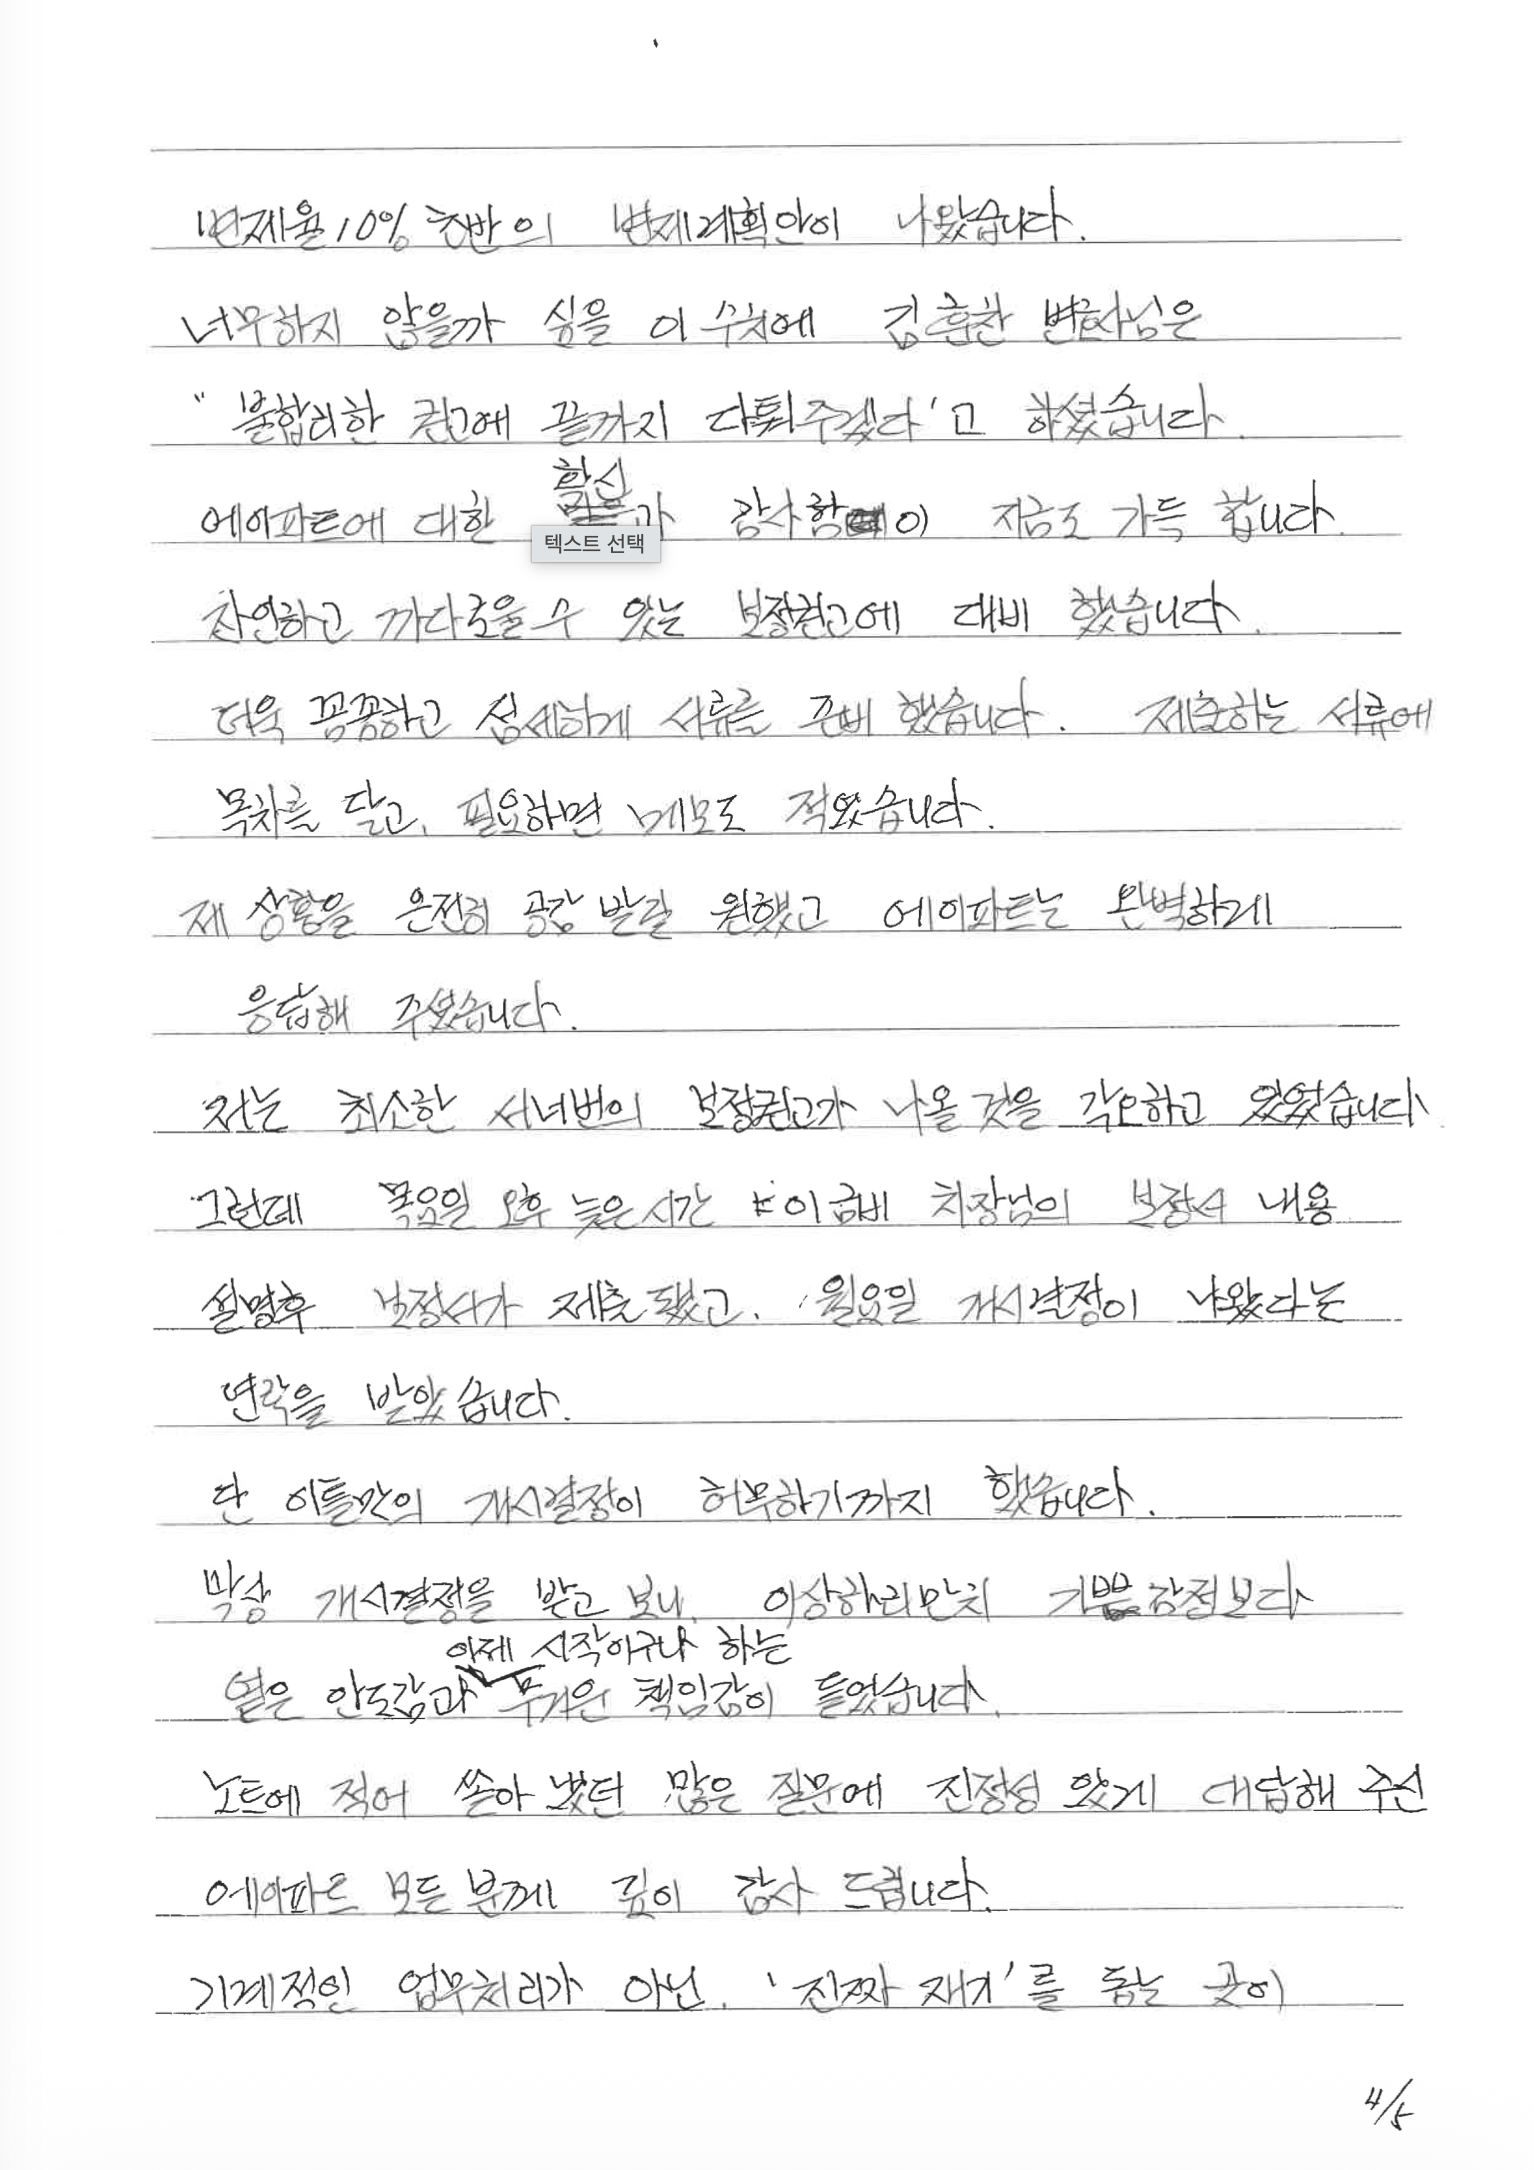 변제율 10% 초반의 변제계획안이 나왔습니다.
너무하지 않을까 싶을 이 수치에 김훈찬 변호사님은
" 불합리한 권고에 끝까지 다퉈주겠다'고 하셨습니다.
확신
에이파트에 대한 과 감사함이 지금도 가득 합니다.
텍스트 선택
잔인하고 까다로울 수 있는 보정권고에 대비 했습니다.
더욱 꼼꼼하고 섬세하게 서류를 준비 했습니다. 제출하는 서류에
목차를 달고, 필요하면 메모도 적었습니다.
제 상황을 온전히 공감 받길 원했고 에이파트는 완벽하게
응답해 주셨습니다.
저는 최소한 서너번의 보정권고가 나올 것을 각오하고 있었습니다.
그런데 목요일 오후 늦은 시간 이금비 차장님의 보정서 내용
설명후 보정서가 제출 됐고, 월요일 개시결정이 나왔다는
연락을 받았습니다.
단 이틀만의 개시결정이 허무하기까지 했습니다.
막상 개시결정을 받고 보니, 이상하리만치 기쁨감정보다
이제 시작이구나 하는
옅은 안도감과 무거운 책임감이 들었습니다.
노트에 적어 쏟아 냈던 많은 질문에 진정성 있게 대답해 주신
에이파트 모든 분께 깊이 감사 드립니다.
기계적인 업무처리가 아닌, '진짜 재기'를 돕는 곳이
4/5